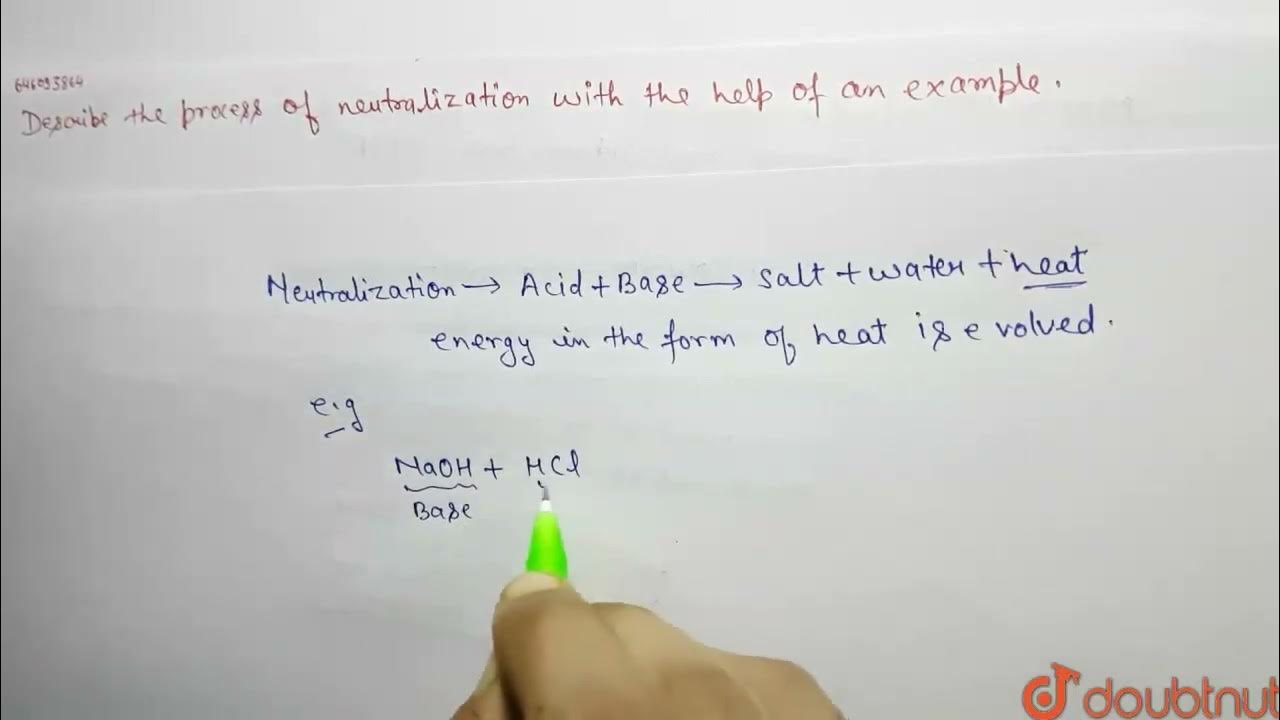 646093864
Describe the process of neutralization with the help of an example.
Neutralization → Acid + Base → salt + water + heat
energy in the form of heat is evolved.
e.g
NaOH + HCl
Base
doubtnut